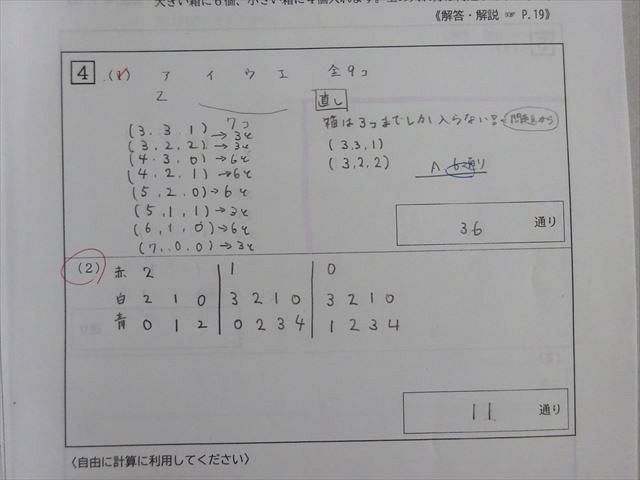 大きい箱に6個、小さい箱に4個入れます。
《解答・解説 ☞ P.19》
4 (1) ア イ ウ エ 全9コ
2
直し
7コ
箱は3コまでしか入らない
(3.3.1)→3と
(3.2.2)→3と
(4.3.0)→6と
(4.2.1)→6と
(5.2.0)→6と
(5.1.1)→3と
(6.1.0)→6と
(7.0.0)→3と
(3.3,1)
(3,2,2)
A 6通り
36 通り
(2) 赤 2 1 0
白 2 1 0 3 2 1 0 3 2 1 0
青 0 1 2 0 2 3 4 1 2 3 4
11 通り
〈自由に計算に利用してください〉